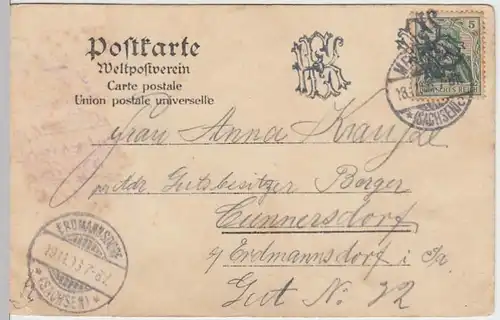 Postkarte
Weltpostverein
Carte postale
Union postale universelle
5
(SACHSEN)
Frau Anna
per Adr. Gutsbesitzer Berger
Cunnersdorf
b/ Erdmannsdorf i. Sa
Gut No. 72
ERDMANNSDORF
(SACHSEN)